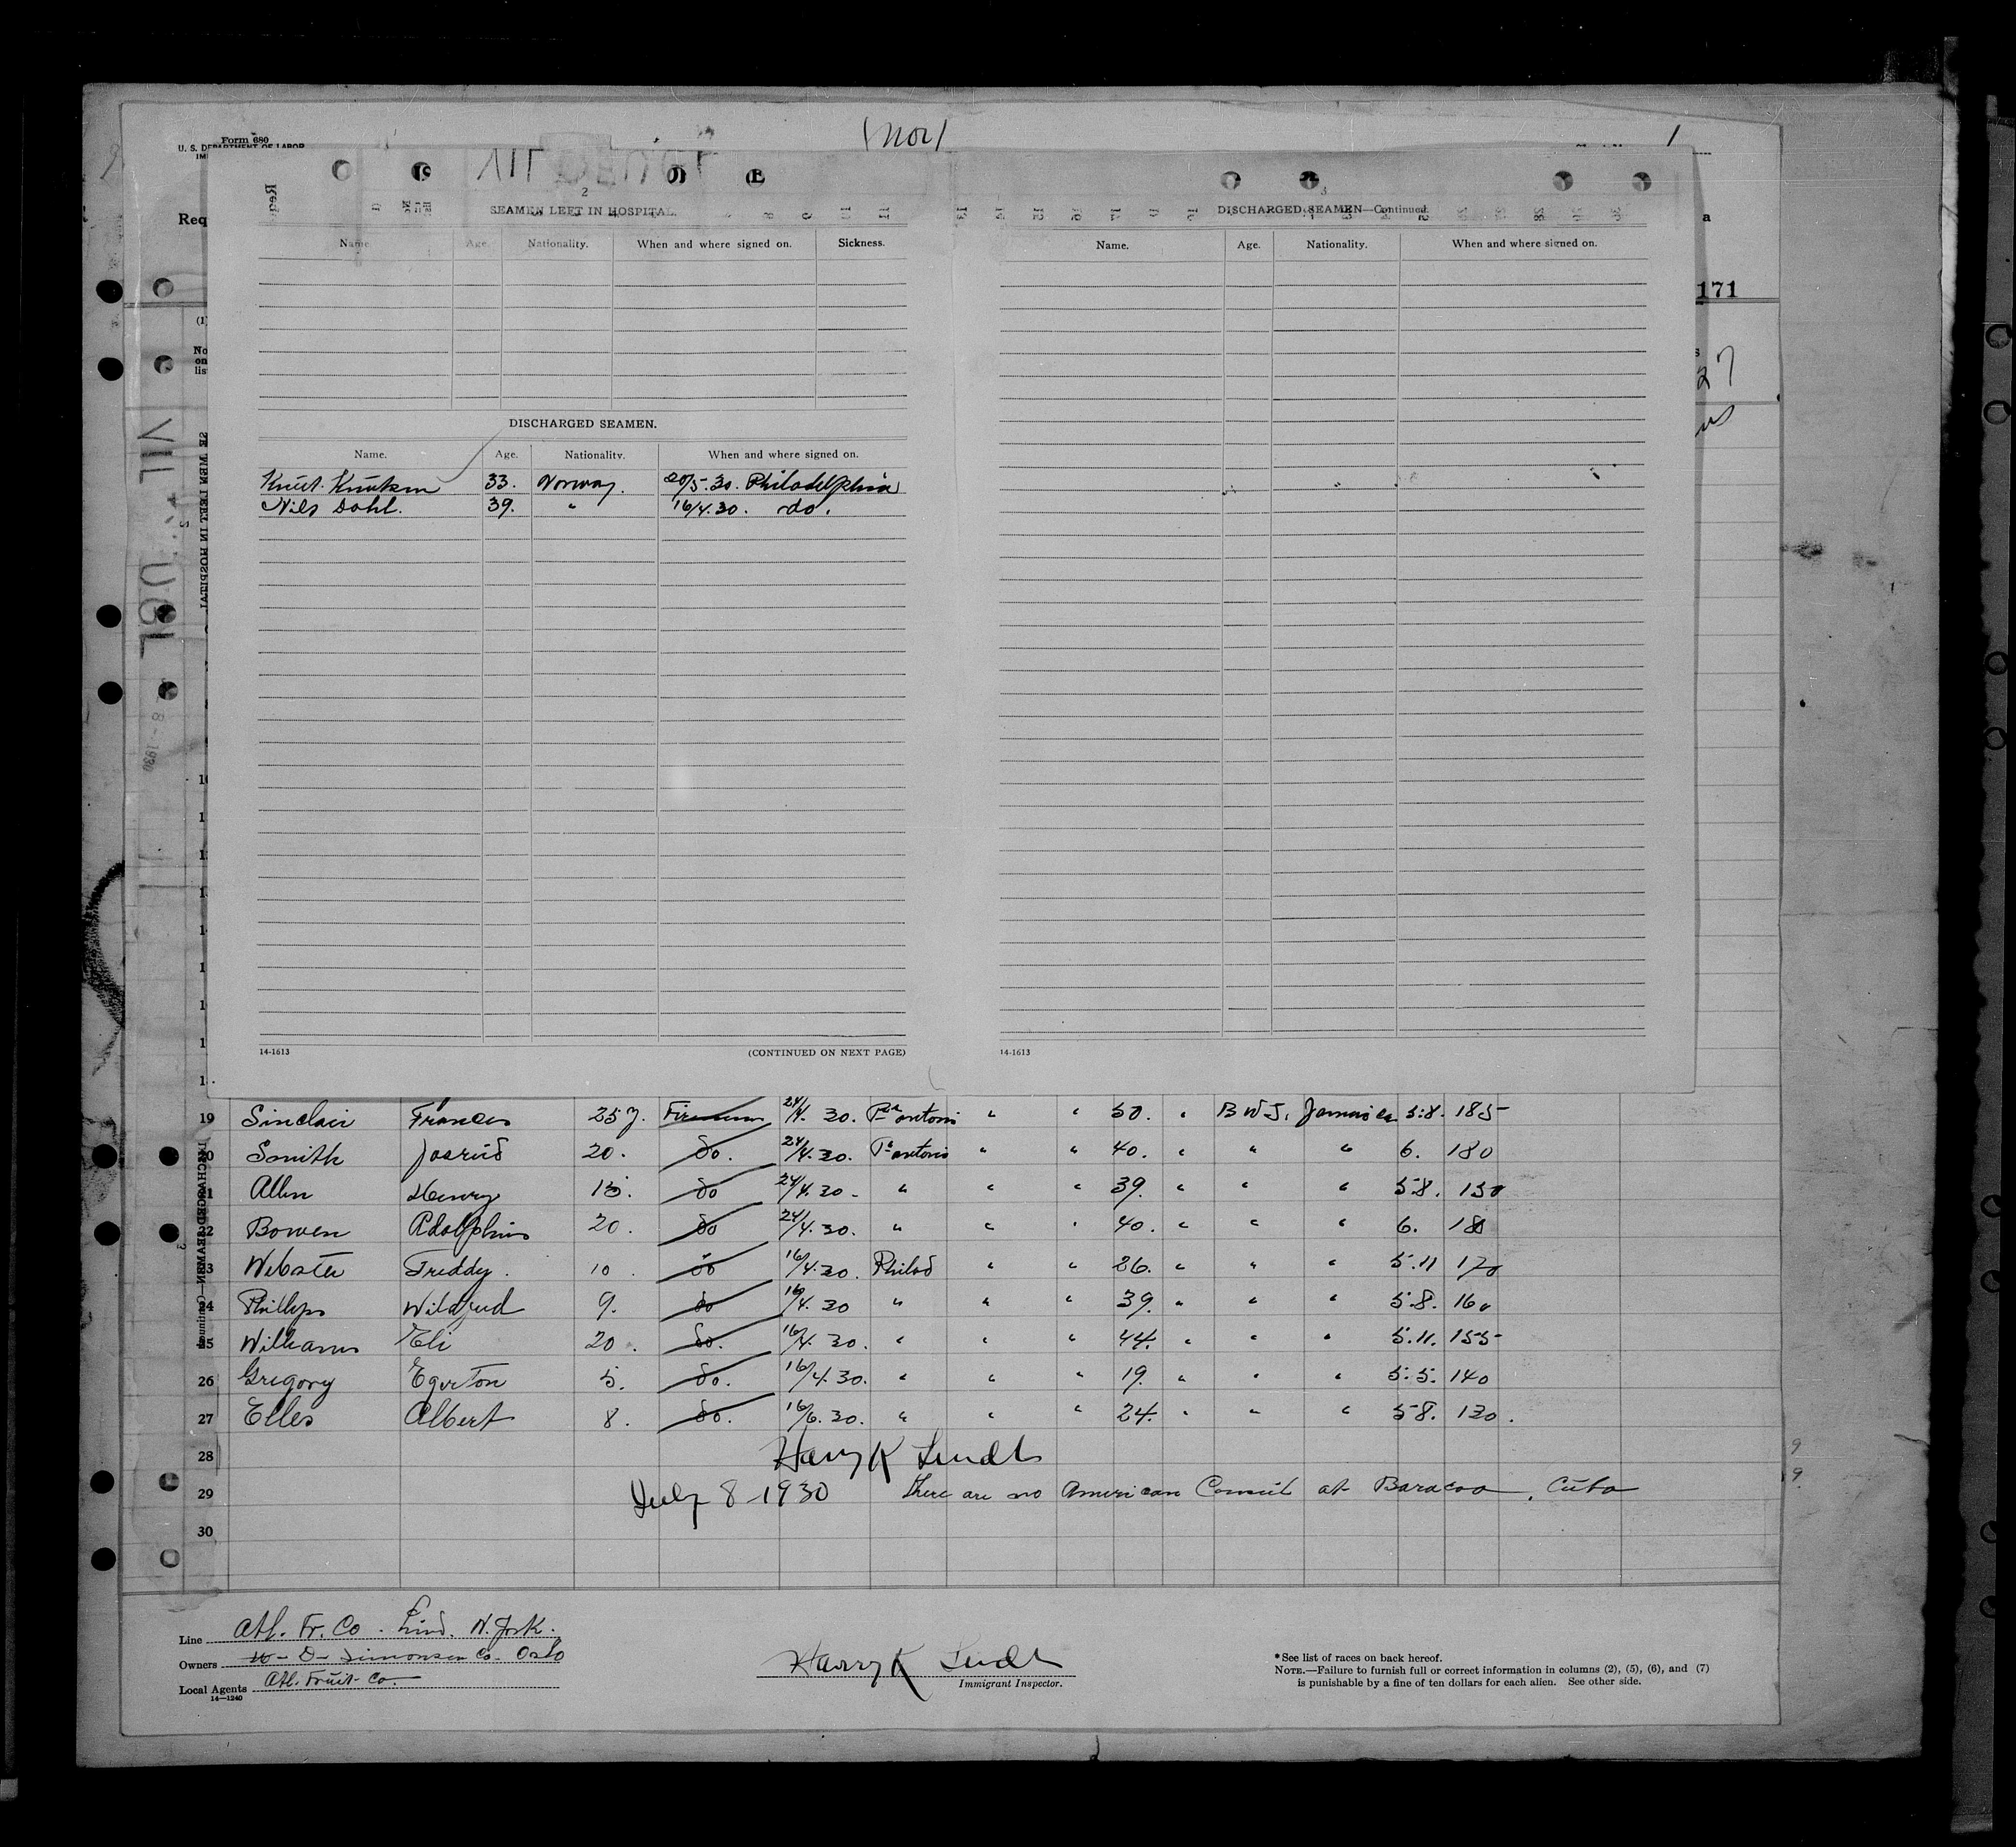 (Nor)
1
Form 680
U. S. DEPARTMENT OF LABOR
Req
a
171
27
2
SEAMEN LEFT IN HOSPITAL.
Name. Age. Nationality. When and where signed on. Sickness.
DISCHARGED SEAMEN.
Name. Age. Nationality. When and where signed on.
Knut Knutsen 33. Norway. 20/5-30. Philadelphia
Nils Dahl. 39. " 16/4.30. do.
14-1613 (CONTINUED ON NEXT PAGE)
3
DISCHARGED SEAMEN—Continued
Name. Age. Nationality. When and where signed on.
14-1613
19 Sinclair Frances 25 y. Fireman 24/4. 30. Pt antonio " " 50. " B W I. Jamaica 5:8. 185
20 Smith 20. do. 24/4.30. Pt antonio " " 40. " " " 6. 180
21 Allen Henry 15. do 24/4.30- " " " 39. " " " 5.8. 150
22 Bowen Adolphus 20. do 24/4.30. " " " 40. " " " 6. 180
23 Webster Freddy. 10 do 16/4.30. Philad " " 26. " " " 5.11 170
24 Phillips Wilfred 9. do 16/4.30 " " " 39. " " " 5.8. 160
25 Williams Eli 20. do. 16/4.30. " " " 44. " " " 5.11. 155
26 Gregory Egerton 5. do. 16/4.30. " " " 19. " " " 5.5. 140
27 Elles Albert 8. do. 16/6.30. " " " 24. " " " 5-8. 130.
28 Harry K Lendt
29 July 8-1930 There are no American Consul at Baracoa, Cuba
30
Line Atl. Fr. Co. N. York.
Owners D- Simonsen Co. Oslo
Local Agents Atl. Fruit Co.
14—1240
Harry K Lendt
Immigrant Inspector.
* See list of races on back hereof.
NOTE.—Failure to furnish full or correct information in columns (2), (5), (6), and (7)
is punishable by a fine of ten dollars for each alien. See other side.